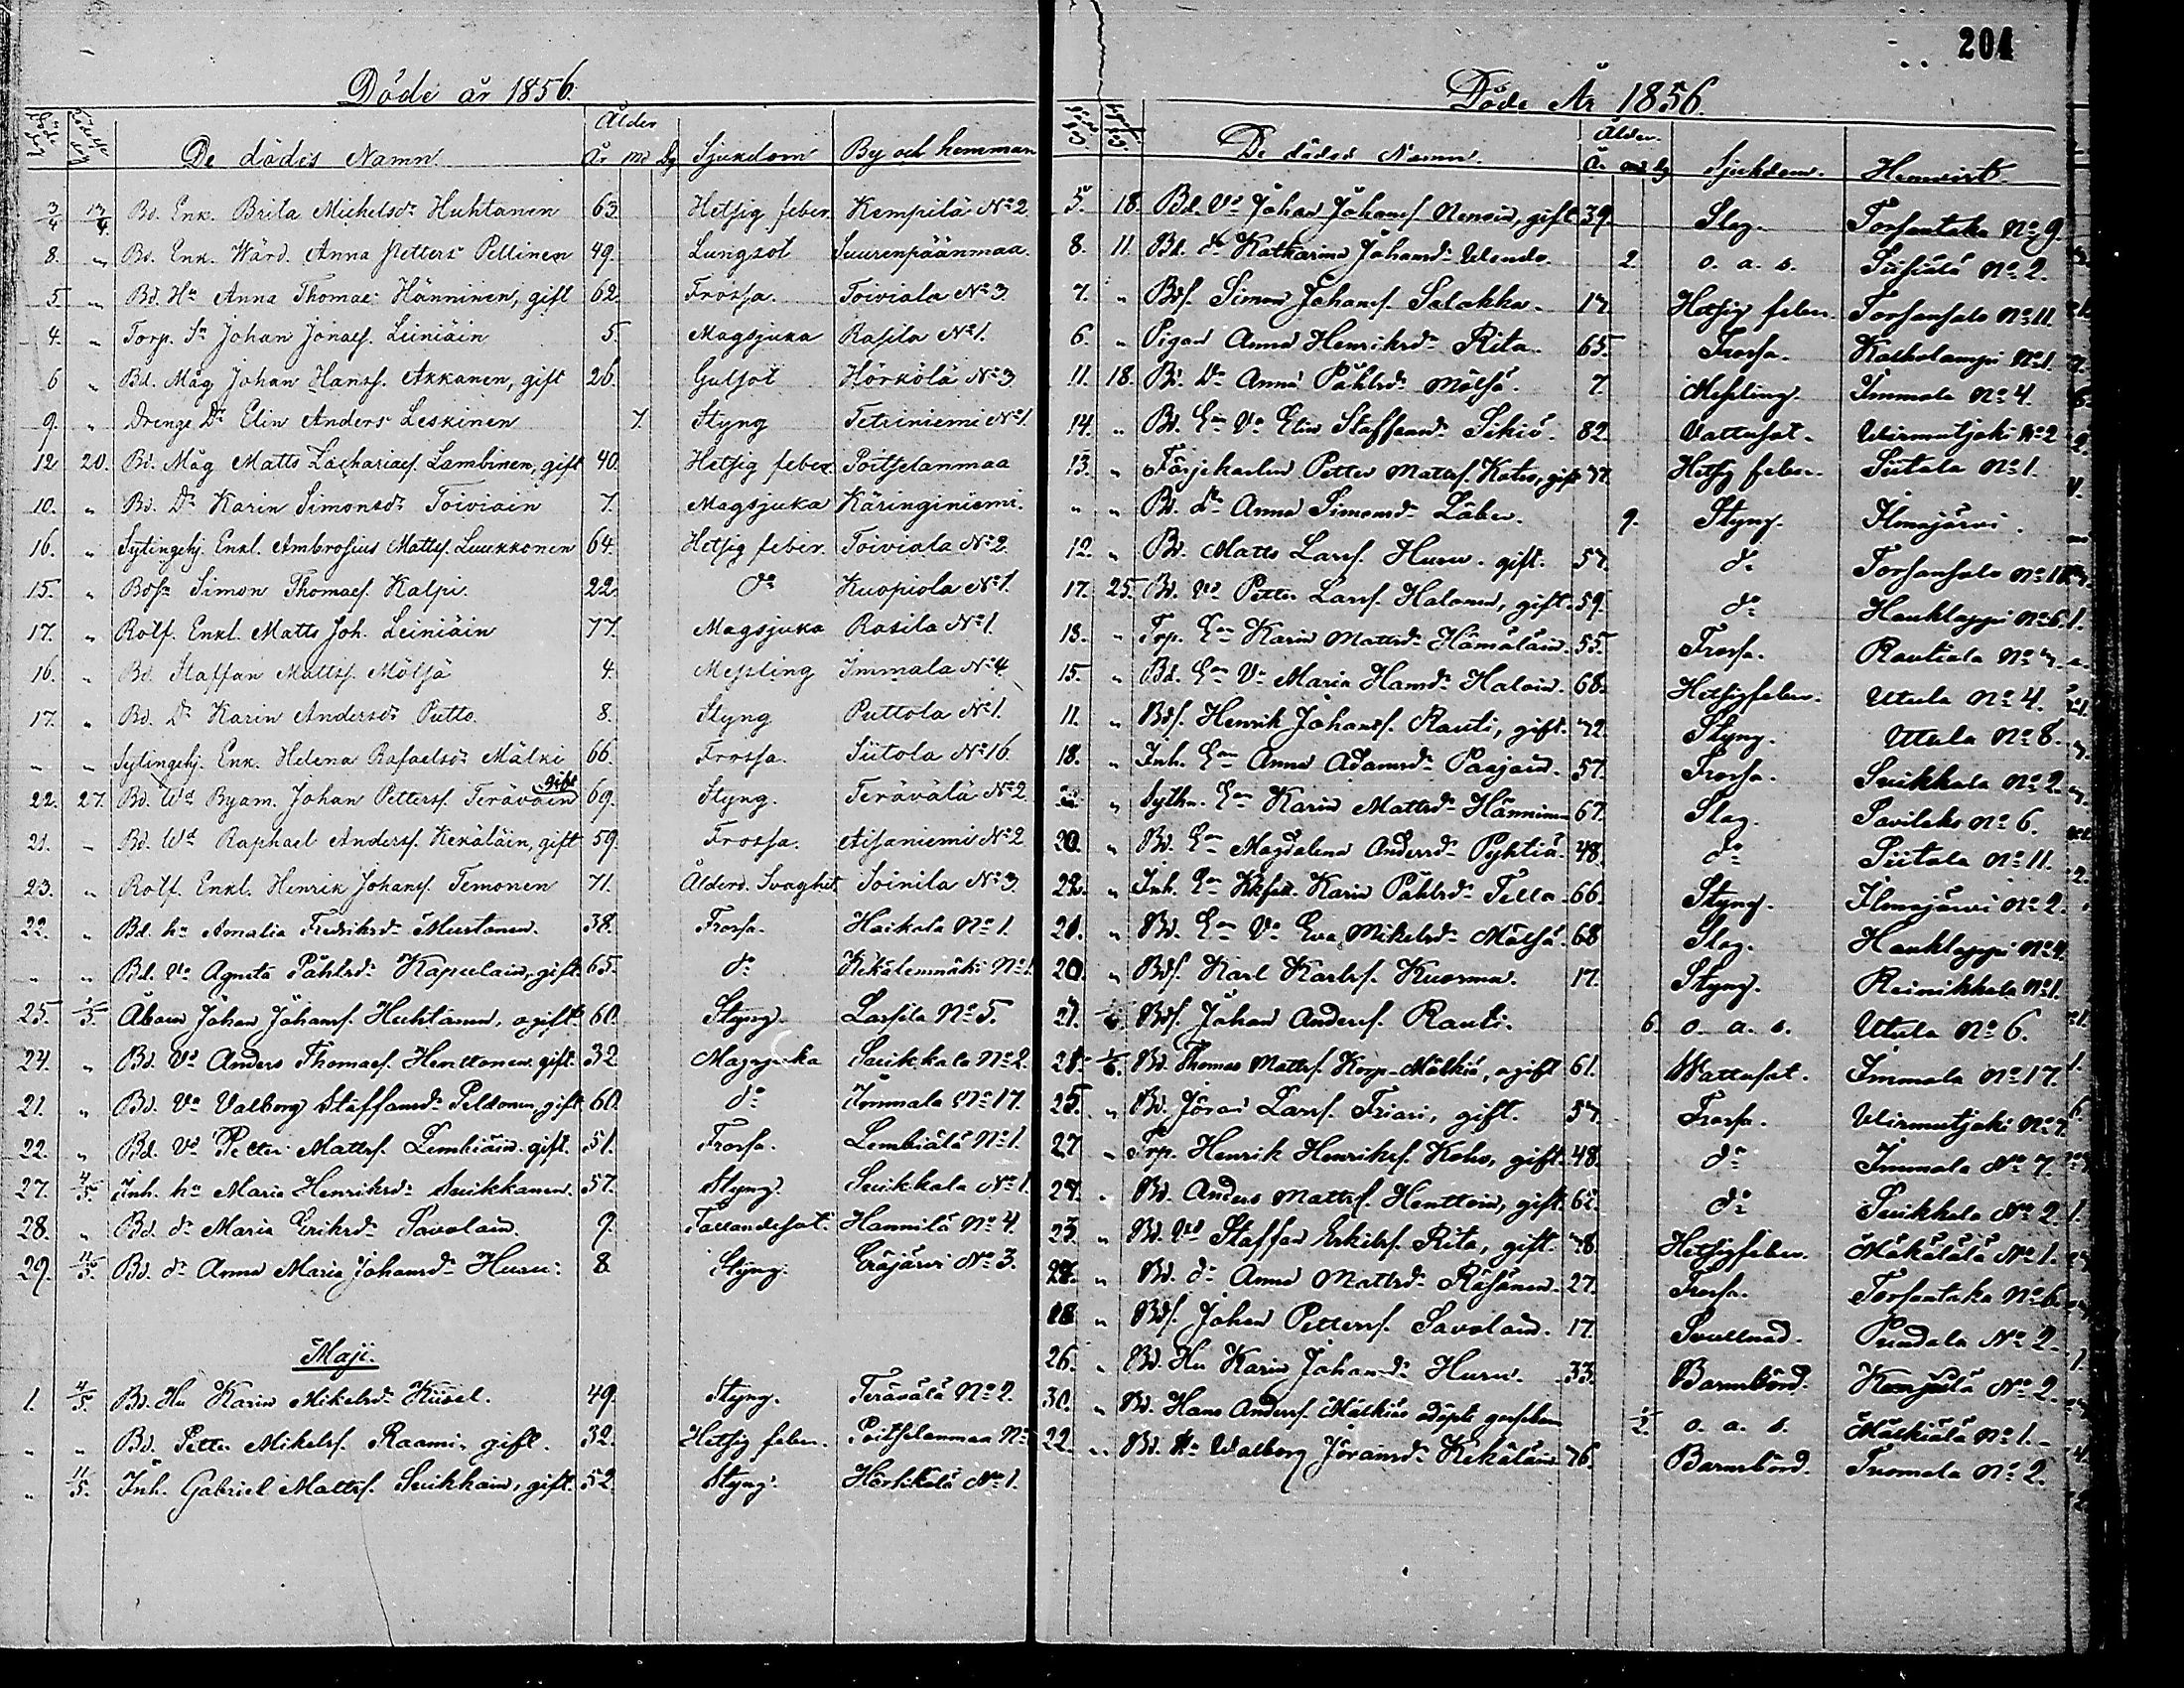 204
Döde år 1856.
Döde dag Jordf. dag De dödes Namn Ålder År Md Dg Sjukdom By och hemman
3/4 13/4 Bd. Enk. Brita Michelsdr Huhtanen 63. Hetsig feber. Kempilä No 2
8. " Bd. Enk. Wärd. Anna Petters Pellinen 49. Lungsot Suurenpäänmaa.
5. " Bd. Hu Anna Thomae: Hänninen, gift 62. Frossa. Toiviala No 3
4. " Torp. Sn Johan Jonaes. Leiniäin 5. Magsjuka Rasila No 1.
6 " Bd. Måg Johan Hanss. Akkanen, gift 26. Gulsot Hörkölä No 3
9. " Drenge Dr Elin Anders Leskinen 7. Styng Tetriniemi No 1.
12 20. Bd. Måg Matts Zachariaes. Lambinen, gift 40. Hetsig feber. Poitselanmaa
10. " Bd. Dr Karin Simonsdr Toiviain 7. Magsjuka Käringiniemi.
16. " Sytingehj. Enkl. Ambrosius Mattss. Luukkonen 64. Hetsig feber. Toiviala No 2.
15. " Bdsn Simon Thomaes. Kalpi 22. do Kuopiola No 1.
17. " Rotf. Enkl. Matts Joh. Leiniäin 77. Magsjuka Rasila No 1.
16. " Bd. Staffan Mattss. Mölsä 4. Messling Immala No 4.
17. " Bd. Dr Karin Andersdr Putto 8. Styng Puttola No 1.
" " Sytingehj. Enk. Helena Rafaelsdr Mälki 66. Frossa. Siitola No 16.
22. 27. Bd. Wd Byam. Johan Petterss. Teräväin gift 69. Styng. Terävälä No 2
21. " Bd. Wd Raphael Anderss. Kekäläin, gift 59. Frossa. Aisaniemi No 2
23. " Rotf. Enkl. Henrik Johanss. Temonen 71. Ålderd. Svaghet Soinila No 3
22. " Bd. hu Amalia Fredriksdr Mustonen. 38. Frossa. Haikala No 1.
" " Bd. Va Agneta Påhlsdr Kapulain, gift 65. do Kekälenmäki No 1.
25. 1/5. Åboen Johan Johanss. Huhtanen, ogift. 60. Styng. Lassila No 5.
24. " Bd. Vd Anders Thomaes. Henttonen gift. 32 Magsjuka Suikkala No 2.
21. " Bd. Va Valborg Staffansdr Peldonen, gift 60. do Immala No 17.
22. " Bd. Vd Petter Mattss. Lemhiäin. gift. 51. Frossa. Lembiälä No 1.
27. 4/5 Inh. hu Maria Henriksdr Suikkanen. 57. Styng. Suikkala No 1.
28. " Bd. dr Maria Eriksdr Savolain. 9. Fallandesot. Hannilä No 4.
29. 11/5. Bd. dr Anna Maria Johansdr Huru: 8. Styng. Eräjärvi No 3.
Maji.
1. 4/5. Bd. Hu Karin Mikelsdr Kiisel. 49. Styng. Terävälä No 2.
" " Bd. Petter Mikelss. Raami, gift. 32. Hetsig feber. Poitselanmaa No
" 11/5. Inh. Gabriel Mattss. Suikkain, gift. 52. Styng. Härskälä No 1.
Döde År 1856.
De dödes Namn. Ålder. År md dg Sjukdom. Hemvist.
5. 18. Bd. Vd Johan Johanss. Nensoin, gift 39. Slag. Torsantaka No 9.
8. 11. Bd. dr Katharina Johansdr Ukendo. 2. o. a. s. Siisiälä No 2.
7. " Bds. Simon Johanss. Salakka. 17. Hetsig feber. Torsansalo No 11.
6. " Pigan Anna Henriksdr Rita. 65. Frossa. Kaskolampi No 1.
11. 18. Bd. Dr Anna Påhlsdr Mölsä. 7. Messling. Immala No 4.
14. " Bd. Ena Va Elin Staffansdr Sikiö. 82. Vattusot. Wirmutjoki No 2
13. " Färjekarlen Petter Mattss. Koto, gift 77. Hetsig feber. Siitola No 1.
" " Bd. dr Anna Simonsdr Läber. 9. Styng. Ilmajärvi.
12. " Bd. Matts Larss. Huru. gift. 57. do Torsansalo No 18.
17. 25. Bd. Vd Petter Larss. Halonen, gift. 59. do Haukkappi No 6.
13. " Trp. Ena Karin Mattsdr Hämäläin. 55. Frossa. Rautiala No 7.
15. " Bd. Ena Va Maria Hansdr Haloin. 68. Hetsigfeber. Utula No 4.
11. " Bds. Henrik Johanss. Rauti, gift. 72. Styng. Utula No 8.
18. " Inh. Ena Anna Adamsdr Paajain. 57. Frossa. Suikkala No 2.
" Sythn. Ena Karin Mattsdr Hänninen 67. Slag. Savilaks No 6.
20. " Bd. Ena Magdalena Andersdr Pyhtiä. 48. do Siitola No 11.
22. " Inh. Ena Karin Påhlsdr Tella. 66. Styng. Ilmajärvi No 2.
21. " Bd. Ena Va Eva Mikelsdr Mölsä. 68 Slag. Haukkappi No 4.
20. " Bds. Karl Karlss. Kuorma. 17. Styng. Reinikkala No 1.
21. Bds. Johan Anderss. Rauti. 6. o. a. s. Utula No 6.
28. 1/6. Bd. Thomas Mattss. Korp-Mälkiä, ogift 61. Wattusot. Immola No 17.
25. " Bd. Jöran Larss. Friari, gift. 57. Frossa. Wirmutjoki No 7.
27 " Trp. Henrik Henrikss. Koho, gift. 48. do Immola No 7.
27. " Bd. Anders Mattss. Henttoin, gift. 62. do Suikkala No 2.
23. " Bd. Vd Staffan Erkilss. Rita, gift. 78. Hetsigfeber. Mäkälälä No 1.
" Bd. dr Anna Mattsdr Räsänen. 27. Frossa. Torsantaka No 6
18 " Bds. Johan Petterss. Savolain. 17. Svullnad. Pundala No 2.
26. " Bd. Hu Karin Johansdr Huru. 33. Barnsbörd. Kempilä No 2.
30. " Bd. Hans Anderss. Mälkiäs odöpte gossebarn 1/2. o. a. s. Mälkiälä No 1.
22. " Bd. Hu Walborg Jöransdr Kekäläin 76. Barnsbörd. Tuomala No 2.